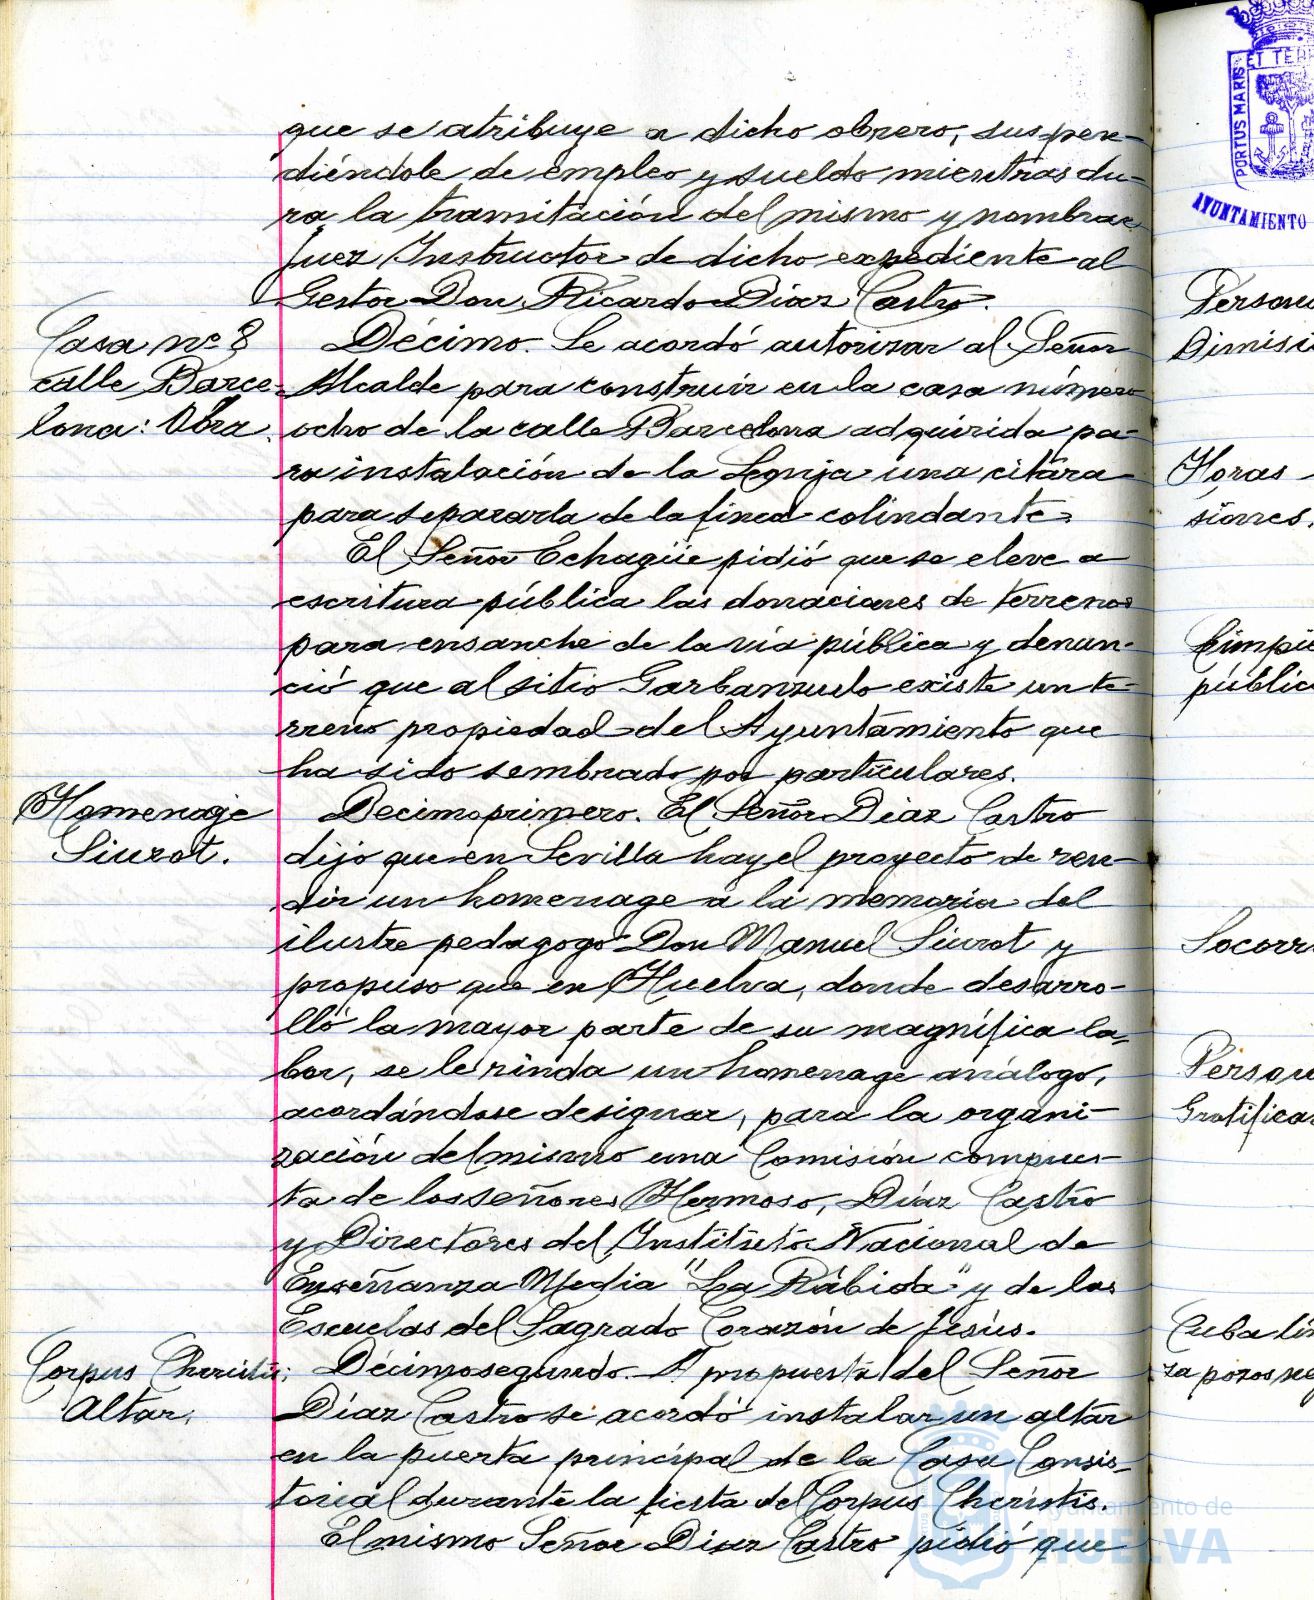 que se atribuye a dicho obrero, suspen-
diéndole de empleo y sueldo mientras du-
ra la tramitación del mismo y nombrar
Juez Instructor de dicho expediente al
Gestor Don Ricardo Díaz Castro.
Casa nº 8
calle Barce-
lona: Obra.
Décimo. Se acordó autorizar al Señor
Alcalde para construir en la casa número
ocho de la calle Barcelona adquirida pa-
ra instalación de la Lonja una citára
para separarla de la finca colindante.
El Señor Echagüe pidió que se eleve a
escritura pública las donaciones de terrenos
para ensanche de la vía pública y denun-
ció que al sitio Garbanzuelo existe un te-
rreno propiedad del Ayuntamiento que
ha sido sembrado por particulares.
Homenage
Siurot.
Decimoprimero. El Señor Díaz Castro
dijo que en Sevilla hay el proyecto de ren-
dir un homenage a la memoria del
ilustre pedagogo Don Manuel Siurot y
propuso que en Huelva, donde desarro-
lló la mayor parte de su magnífica la-
bor, se le rinda un homenage análogo,
acordándose designar, para la organi-
zación del mismo una Comisión compues-
ta de los señores Hermoso, Díaz Castro
y Directores del Instituto Nacional de
Enseñanza Media "La Rábida" y de las
Escuelas del Sagrado Corazón de Jesús.
Corpus Christis;
Altar.
Décimosegundo. A propuesta del Señor
Díaz Castro se acordó instalar un altar
en la puerta principal de la Casa Consis-
torial durante la fiesta del Corpus Cheristis.
El mismo Señor Díaz Castro pidió que
PORTUS MARIS ET TERR
AYUNTAMIENTO
Horas
siones.
Limpie
pública
Socorr
Gratificac
Cuba lim
za pozos neg
Ayuntamiento de
HUELVA